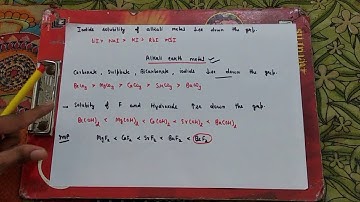 Iodide solubility of alkali metal ↓es down the grp.
LiI > NaI > KI > RbI > CsI
Alkali earth metal
Carbonate, Sulphate, Bicarbonate, iodide ↓es down the grp.
BeCO3 > MgCO3 > CaCO3 > SrCO3 > BaCO3
→ Solubility of F and Hydroxide ↑es down the grp.
Be(OH)2 < Mg(OH)2 < Ca(OH)2 < Sr(OH)2 < Ba(OH)2
MgF2 < CaF2 < SrF2 < BaF2 < BeF2